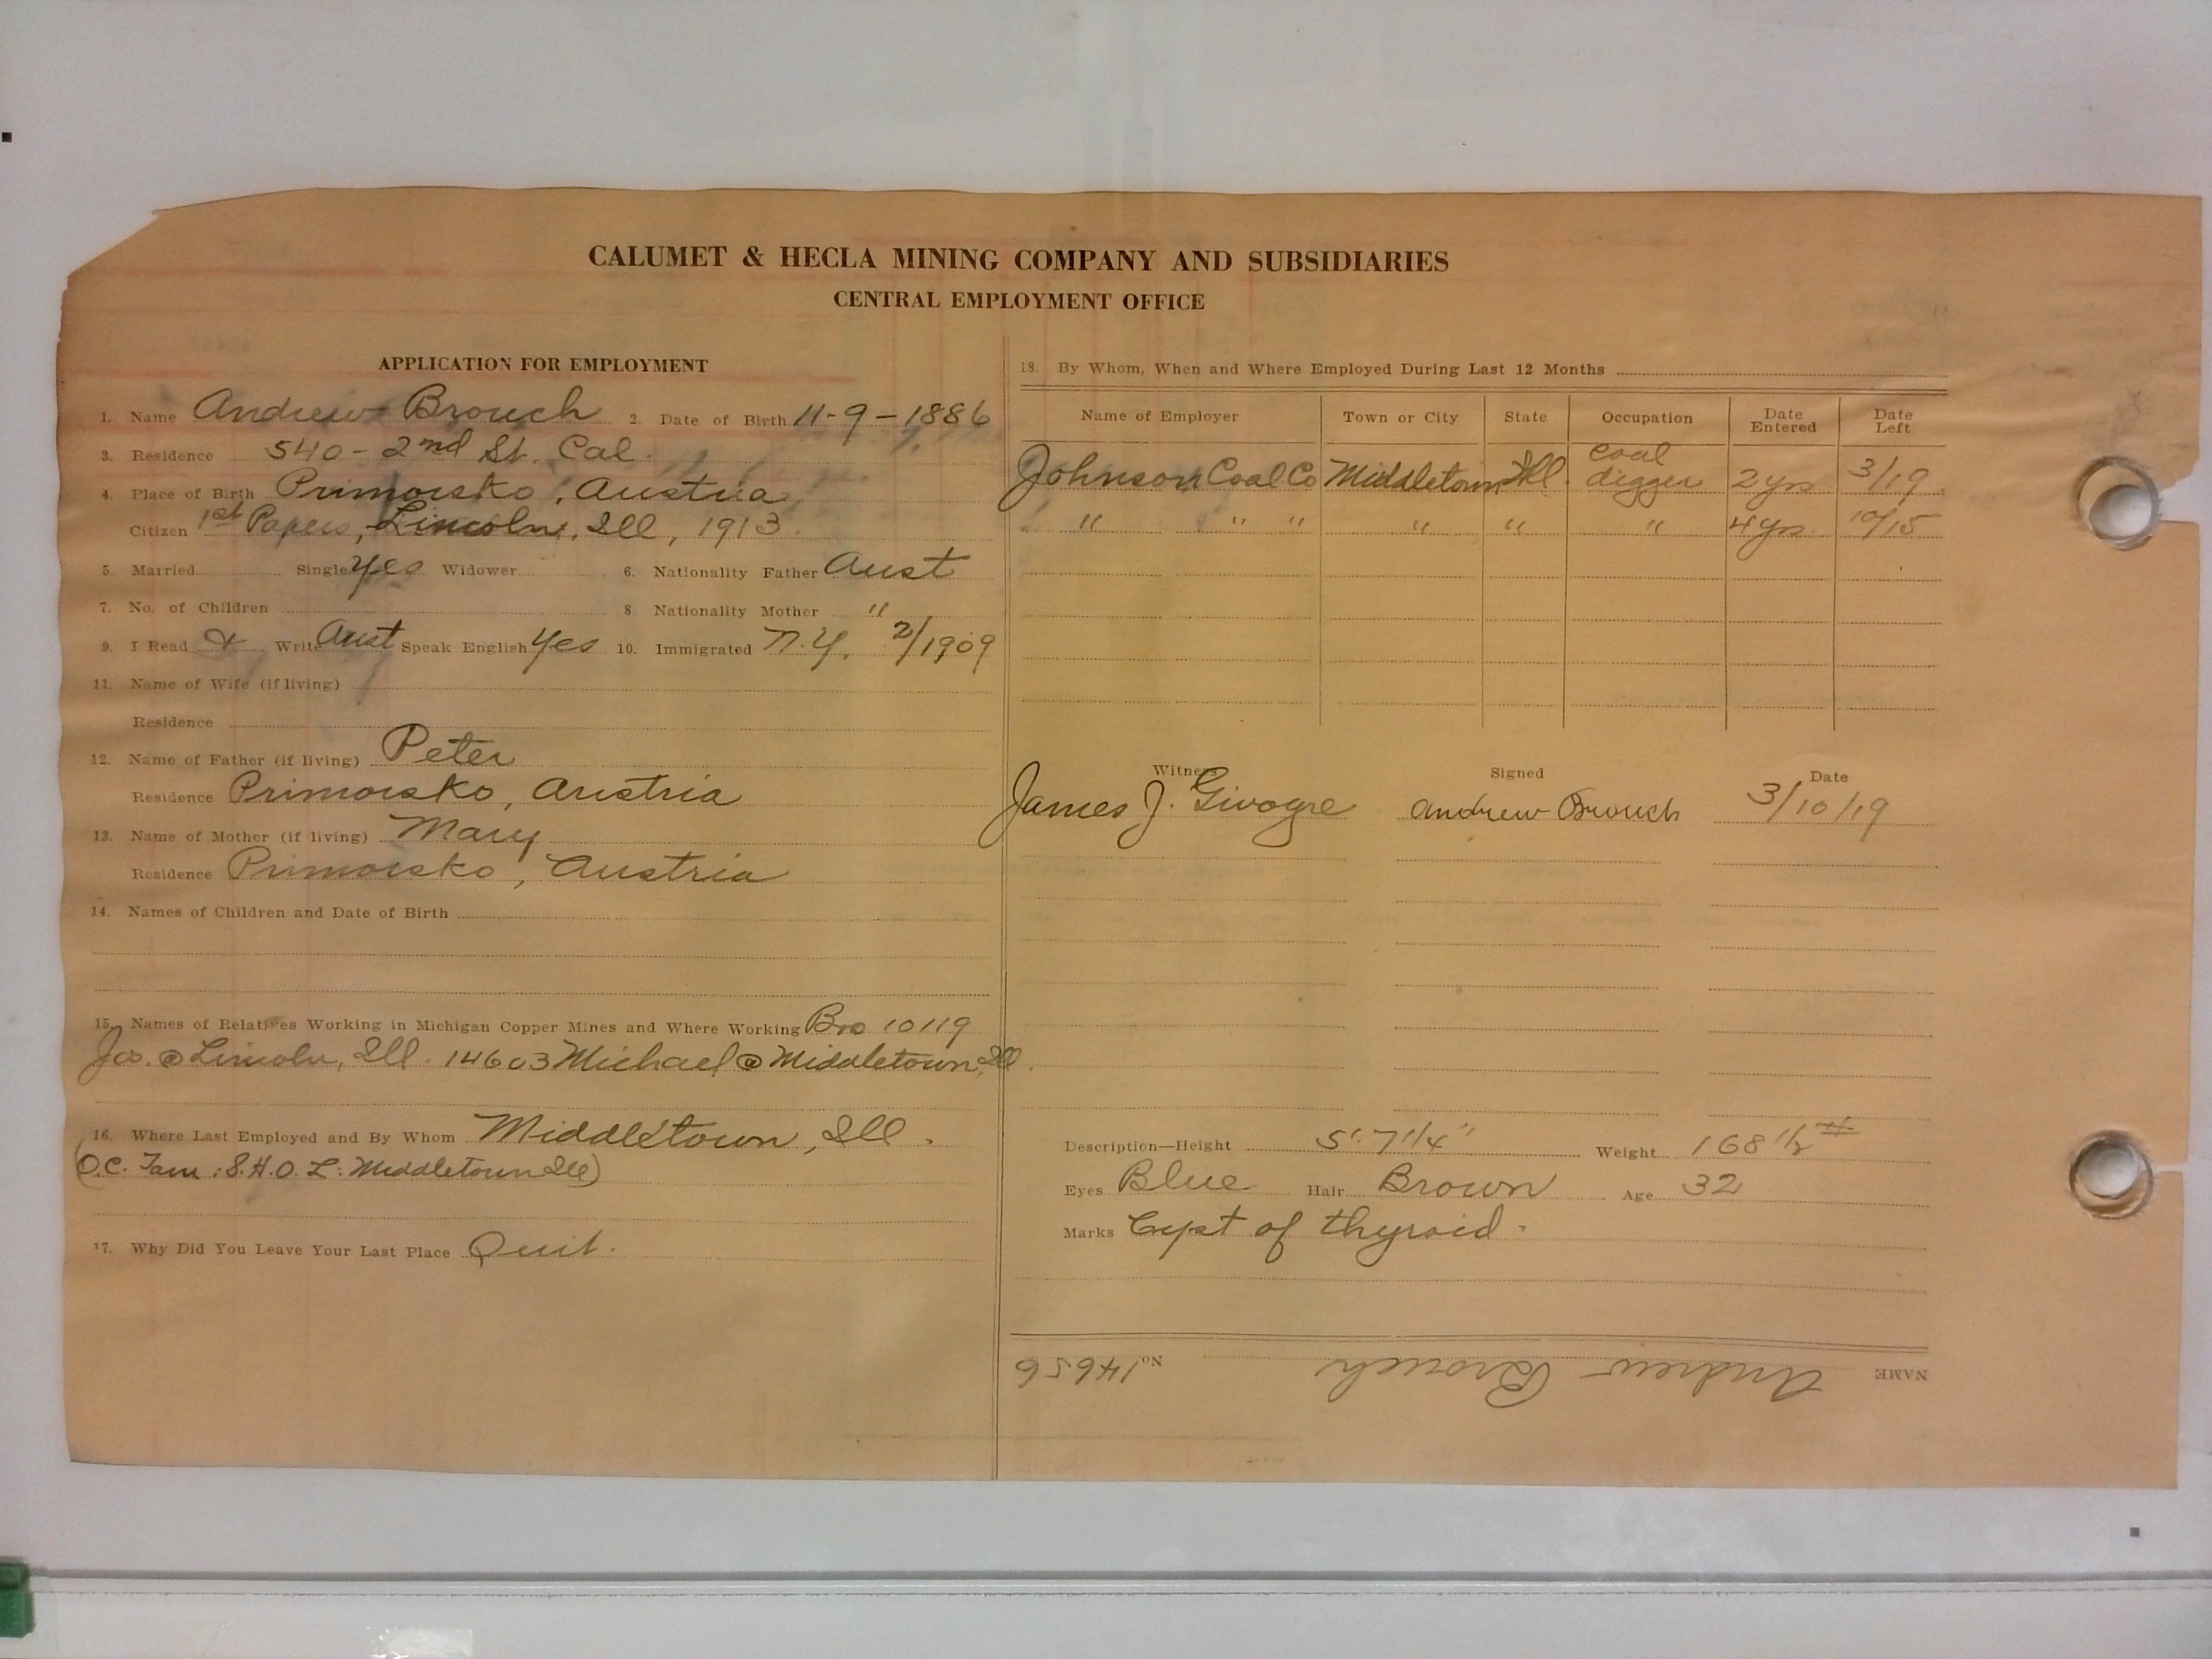 CALUMET & HECLA MINING COMPANY AND SUBSIDIARIES
CENTRAL EMPLOYMENT OFFICE
APPLICATION FOR EMPLOYMENT
1. Name Andrew Brouch 2. Date of Birth 11-9-1886
3. Residence 540-2nd St. Cal.
4. Place of Birth Primorsko, Austria
Citizen 1st Papers, Lincoln, Ill, 1913.
5. Married Single Yes Widower 6. Nationality Father Aust
7. No. of Children 8 Nationality Mother "
9. I Read & Write Aust Speak English Yes 10. Immigrated N.Y. 2/1909
11. Name of Wife (if living)
Residence
12. Name of Father (if living) Peter
Residence Primorsko, Austria
13. Name of Mother (if living) Mary
Residence Primorsko, Austria
14. Names of Children and Date of Birth
15. Names of Relatives Working in Michigan Copper Mines and Where Working Bro 10119
Jos. @ Lincoln, Ill. 14603 Michael @ Middletown, Ill.
16. Where Last Employed and By Whom Middletown, Ill.
(O.C. Tam: S.H.O. L: Middletown Ill)
17. Why Did You Leave Your Last Place Quit.
18. By Whom, When and Where Employed During Last 12 Months
Name of Employer Town or City State Occupation Date Entered Date Left
Johnson Coal Co Middletown Ill. Coal digger 2 yrs 3/19
" " " " " " 4 yrs. 10/15
Witness Signed Date
James J. Givogre Andrew Brouch 3/10/19
Description—Height 5'. 7 1/4" Weight 168 1/2 #
Eyes Blue Hair Brown Age 32
Marks Cyst of thyroid.
NAME Andrew Brouch No 14656